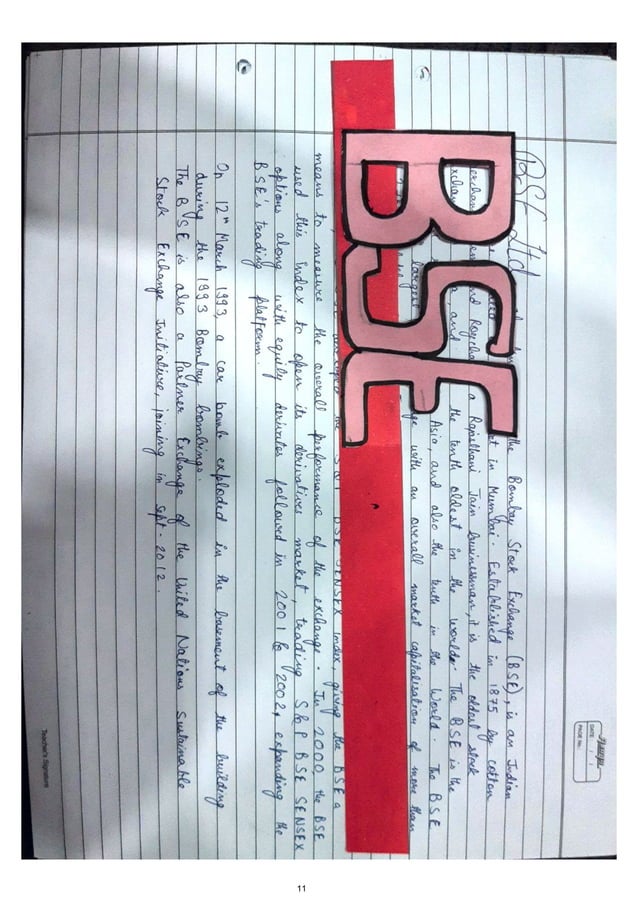 BSE Ltd
BSE
the Bombay Stock Exchange (BSE), is an Indian
in Mumbai. Established in 1875 by cotton
a Rajasthani Jain businessman, it is the oldest stock
and the tenth oldest in the world. The BSE is the
largest Asia, and also the tenth in the World. The BSE
with an overall market capitalisation of more than
BSE SENSEX index, giving the BSE a
means to measure the overall performance of the exchange. In 2000 the BSE
used this index to open its derivatives market, trading S&P BSE SENSEX
options along with equity derivates followed in 2001 & 2002, expanding the
BSE's trading platform.
On 12th March 1993, a car bomb exploded in the basement of the building
during the 1993 Bombay bombings.
The BSE is also a Partner Exchange of the United Nations Sustainable
Stock Exchange Initiative, joining in Sept. 2012.
DATE : / /
PAGE No.:
Teacher's Signature
11